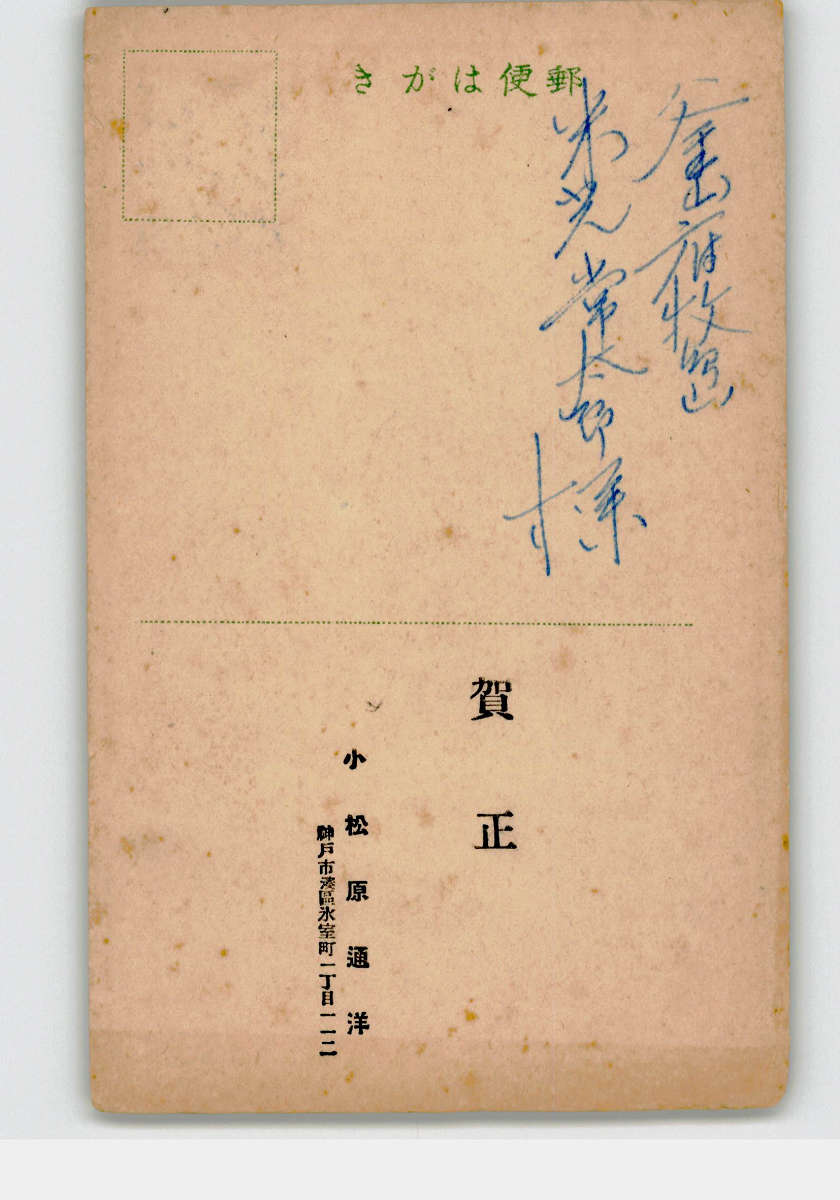 郵便はがき
釜山府牧島
米光常太郎様
賀正
小松原通洋
神戸市湊區氷室町一丁目一一二